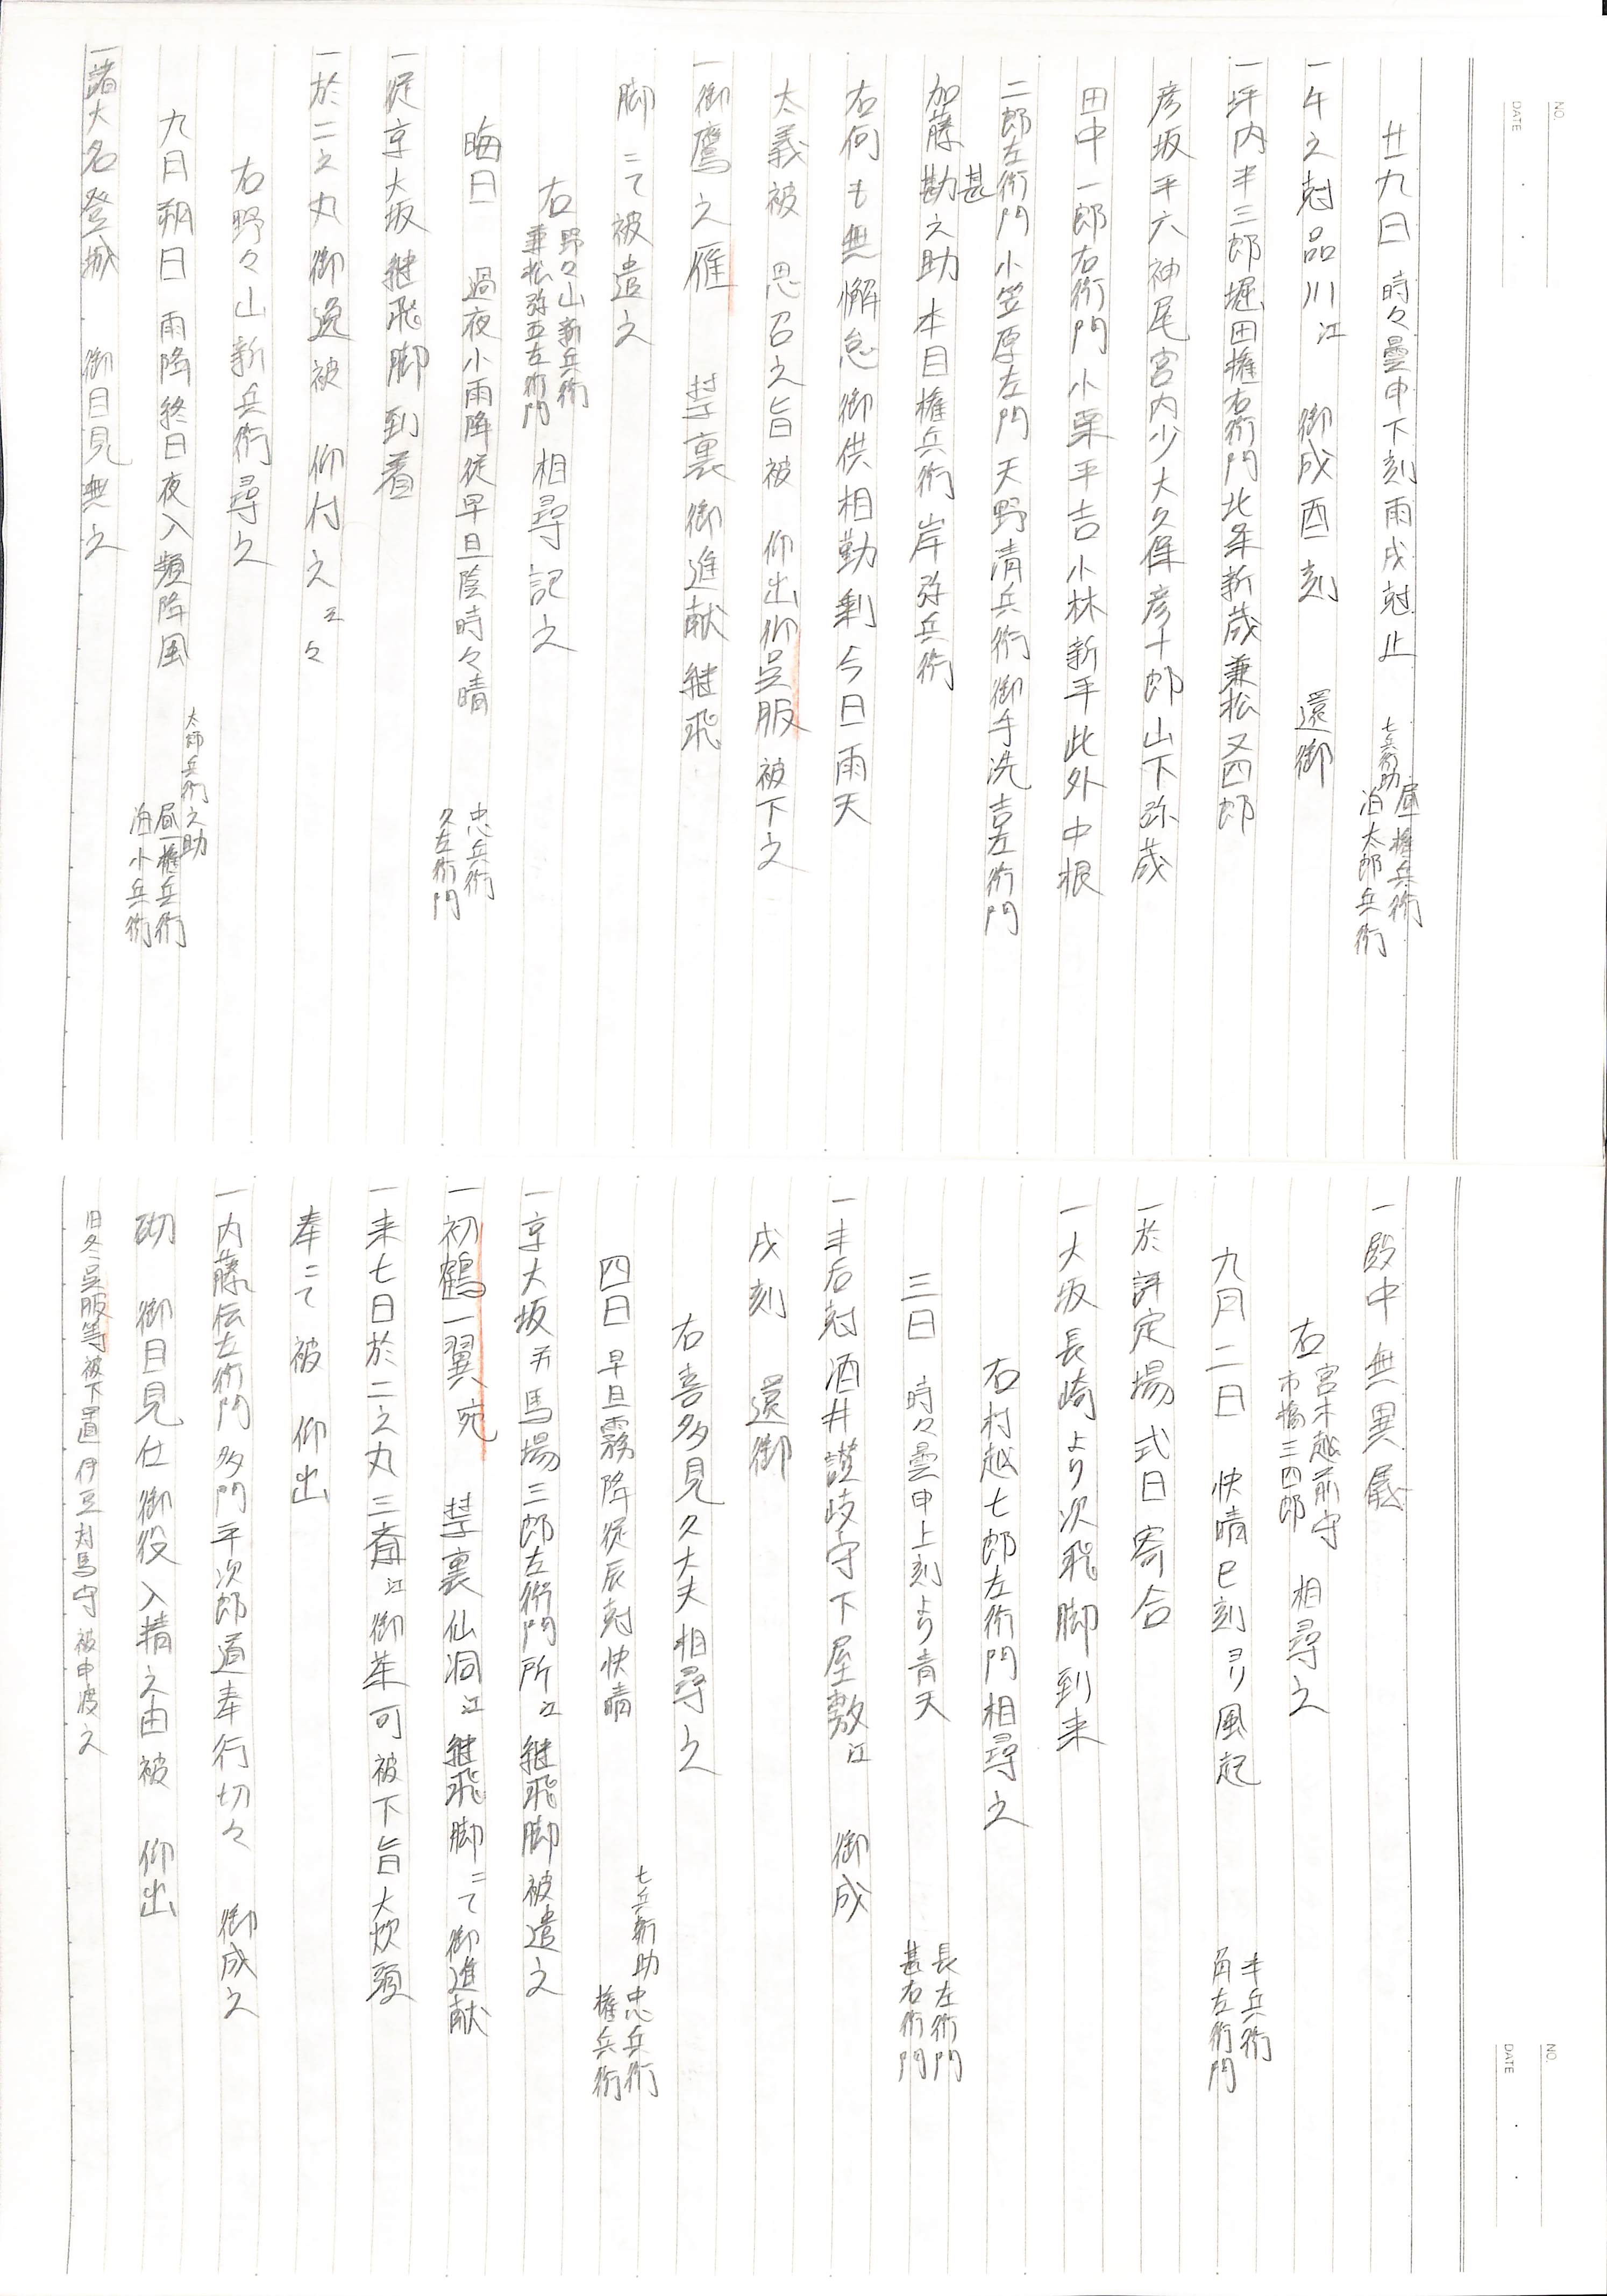 NO.
DATE
廿九日 時々曇申下刻雨戌尅止 七兵衛助 昼権兵衛 泊太郎兵衛
一午之尅品川江 御成酉刻 還御
一坪内半三郎堀田権右衛門北条新蔵兼松又四郎
彦坂平六神尾宮内少大久保彦十郎山下弥蔵
田中一郎右衛門小栗平吉小林新平此外中根
二郎左衛門小笠原左門天野清兵衛御手洗吉左衛門
加藤勘之助 甚 本目権兵衛岸弥兵衛
右何も無懈怠御供相勤剰今日雨天
太義被 思召之旨被 仰出仰呉服被下之
一御鷹之雁 禁裏御進献継飛
脚ニて被遣之
右 野々山新兵衛 兼松弥五左衛門 相尋記之
晦日 過夜小雨降従早旦陰時々晴 忠兵衛 久左衛門
一従京大坂継飛脚到着
一於二之丸御逸被 仰付之云々
右野々山新兵衛尋之
九日朔日 雨降終日夜入頻降風 太郎兵衛之助 昼権兵衛 泊小兵衛
一諸大名登城 御目見無之
NO.
DATE
一殿中無異儀
右 宮木越前守 市橋三四郎 相尋之
九月二日 快晴巳刻ヨリ風起 半兵衛 角左衛門
一於評定場式日寄合
一大坂長崎より次飛脚到来
右村越七郎左衛門相尋之
三日 時々曇申上刻より青天 長左衛門 甚右衛門
一未后尅酒井讃岐守下屋敷江 御成
戌刻 還御
右喜多見久大夫相尋之
四日 早旦霧降従辰尅快晴 七兵衛助 忠兵衛 権兵衛
一京大坂并馬場三郎左衛門所江継飛脚被遣之
一初鶴一翼宛 禁裏仙洞江継飛脚ニて御進献
一来七日於二之丸三斎江御茶可被下旨大炊頭
奉ニて被 仰出
一内藤伝左衛門多門平次郎道奉行切々 御成之
砌 御目見仕御役入精之由被 仰出
旧冬呉服等被下置伊豆対馬守被申渡之